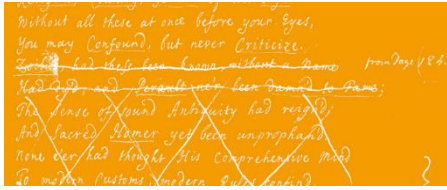 Without all these at once before your Eyes,
You may Confound, but never Criticize.
Zoilus had these been known without a Name from
Had dyd, and Perault ne'er been damnd to Fame;
The Sense of sound Antiquity had reignd,
And Sacred Homer yet been unprophand
None e'er had thought His Comprehensive Mind
To modern Customs, modern Rules confind